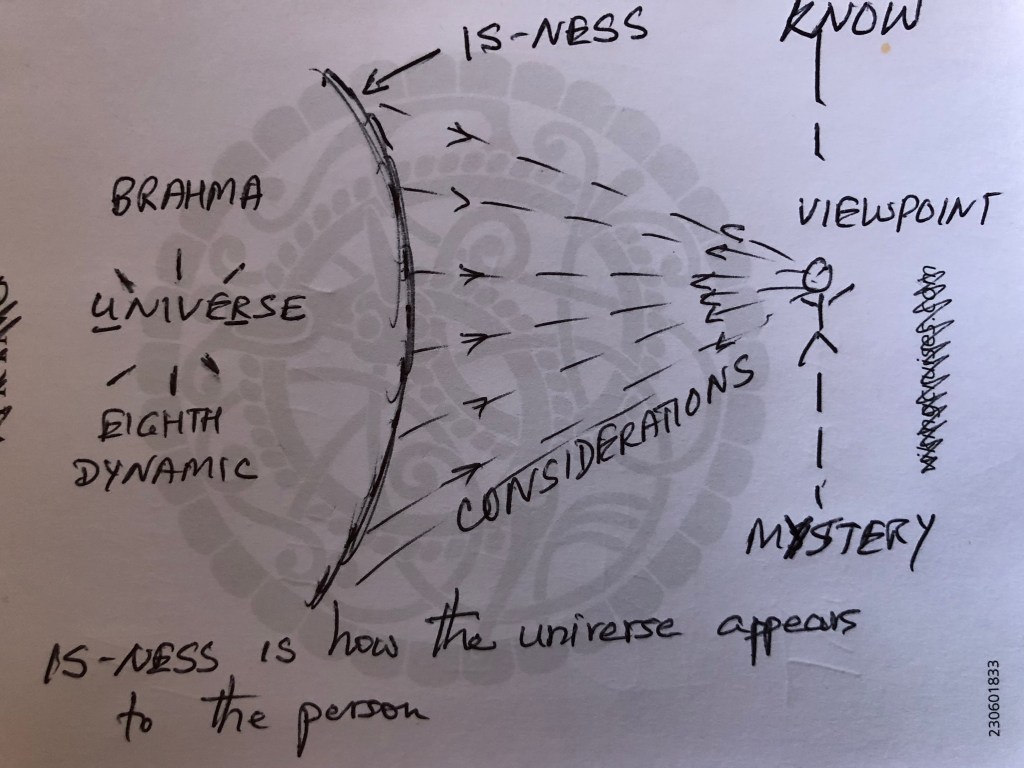 IS-NESS
KNOW
BRAHMA
VIEWPOINT
UNIVERSE
EIGHTH
DYNAMIC
CONSIDERATIONS
MYSTERY
IS-NESS IS how the universe appears
to the person
230601833